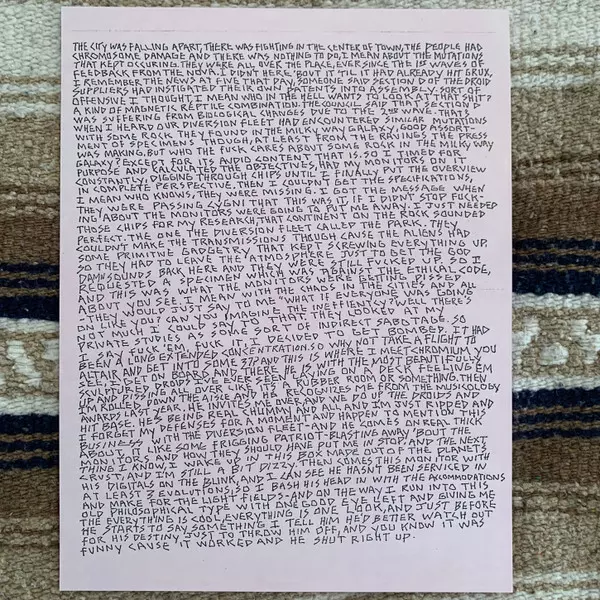 THE CITY WAS FALLING APART, THERE WAS FIGHTING IN THE CENTER OF TOWN, THE PEOPLE HAD
CHROMOSOME DAMAGE AND THERE WAS NOTHING TO DO, I MEAN ABOUT THE MUTATIONS
THAT KEPT OCCURING. THEY WERE ALL OVER THE PLACE, EVER SINCE THE 1ST WAVES OF
FEEDBACK FROM THE NOVA. I DIDN'T HERE 'BOUT IT 'TIL IT HAD ALREADY HIT GRUX,
I REMEMBER THE NEWS AT FIVE THAT DAY, SOMEONE SAID SECTION D OF THE DROID
SUPPLIERS HAD INSTIGATED THEIR OWN PATENTS INTO ASSEMBLY. SORT OF
OFFENSIVE I THOUGHT, I MEAN WHO IN THE HELL WANTS TO LOOK AT THAT SHIT?
A KIND OF MAGNETIC REPTILE COMBINATION. THE COUNCIL SAID THAT SECTION D
WAS SUFFERING FROM BIOLOGICAL CHANGES DUE TO THE 2ND WAVE. THAT'S
WHEN I HEARD OUR DIVERSION FLEET HAD ENCOUNTERED SIMILAR MUTATIONS
WITH SOME ROCK THEY FOUND IN THE MILKY WAY GALAXY, GOOD ASSORT-
MENT OF SPECIMENS THOUGH, AT LEAST FROM THE RAVINGS THE PRESS
WAS MAKING. BUT WHO THE FUCK CARES ABOUT SOME ROCK IN THE MILKY WAY
GALAXY? EXCEPT FOR ITS AUDIO CONTENT THAT IS. SO I TIMED FOR
PURPOSE AND CALCULATED THE OBJECTIVES, HAD MY MONITORS ON IT
CONSTANTLY, DIGGING THROUGH CHIPS UNTIL I FINALLY PUT THE OVERVIEW
IN COMPLETE PERSPECTIVE. THEN I COULDN'T GET THE SPECIFICATIONS,
I MEAN WHO KNOWS, THEY WERE MISSING. I GOT THE MESSAGE WHEN
THEY WERE PASSING CYGNI THAT THIS WAS IT, IF I DIDN'T STOP FUCK-
ING ABOUT THE MONITORS WERE GOING TO PUT ME AWAY. I JUST NEEDED
THOSE CHIPS FOR MY RESEARCH, THAT CONTINENT ON THE ROCK SOUNDED
PERFECT. THE ONE THE DIVERSION FLEET CALLED THE PARK. THEY
COULDN'T MAKE THE TRANSMISSIONS THOUGH CAUSE THE ALIENS HAD
SOME PRIMITIVE GADGETRY THAT KEPT SCREWING EVERYTHING UP,
SO THEY HAD TO LEAVE THE ATMOSPHERE JUST TO GET THE GOD
DAMN SOUNDS BACK HERE AND THEY WERE STILL FUCKED UP. SO I
REQUESTED A SPECIMEN WHICH WAS AGAINST THE ETHICAL CODE,
AND THIS WAS WHAT THE MONITORS WERE GETTING PISSED
ABOUT YOU SEE. I MEAN WITH THE CHAOS IN THE CITIES AND ALL
THEY WOULD JUST SAY TO ME "WHAT IF EVERYONE WAS GOING
ON LIKE YOU? CAN YOU IMAGINE THE INEFFICIENCY?" WELL THERE'S
NOT MUCH I COULD SAY TO THAT. THEY LOOKED AT MY
PRIVATE STUDIES AS SOME SORT OF INDIRECT SABOTAGE. SO
I SAY FUCK 'EM, FUCK IT, I DECIDED TO GET BOMBED. IT HAD
BEEN A LONG EXTENDED CONCENTRATION. SO WHY NOT TAKE A FLIGHT TO
ALTAIR AND GET INTO SOME 37? AND THIS IS WHERE I MEET CHROMIUM YOU
SEE, I GET ON BOARD AND THERE HE IS WITH THE MOST BEAUTIFULLY
SCULPTURED DROIDS I'VE EVER SEEN, LAYING ON A DECK FEELING 'EM
UP AND PISSING ALL OVER LIKE IT'S A RUBBER ROOM OR SOMETHING. THEY
I'M ROLLED DOWN THE AISLE AND HE RECOGNIZES ME FROM THE MUSICOLOGY
AWARDS LAST YEAR. HE INVITES ME OVER AND WE DO UP THE DROIDS AND
HIT BASE. HE'S BEING REAL CHUMMY AND ALL AND I'M JUST RIPPED AND
I FORGET MY DEFENSES FOR A MOMENT AND HAPPEN TO MENTION THIS
BUSINESS WITH THE DIVERSION FLEET—AND HE COMES ON REAL THICK
ABOUT IT LIKE SOME FRIGGING PATRIOT—BLASTING AWAY 'BOUT THE
MONITORS AND HOW THEY SHOULD HAVE PUT ME IN STOP. AND THE NEXT
THING I KNOW, I WAKE UP IN THIS BOX MADE OUT OF THE PLANET'S
CRUST, AND I'M STILL A BIT DIZZY. THEN COMES THIS MONITOR WITH
HIS DIGITALS ON THE BLINK, AND I CAN SEE HE HASN'T BEEN SERVICED IN
AT LEAST 2 EVOLUTIONS, SO I BASH HIS HEAD IN WITH THE ACCOMMODATIONS
AND MAKE FOR THE LIGHT FIELDS—AND ON THE WAY I RUN INTO THIS
OLD PHILOSOPHICAL TYPE WITH ONE GOOD EYE LEFT AND GIVING ME
THE EVERYTHING IS COOL, EVERYTHING IS ONE LOOK, AND JUST BEFORE
HE STARTS TO SAY SOMETHING I TELL HIM HE'D BETTER WATCH OUT
FOR HIS DESTINY, JUST TO THROW HIM OFF, AND YOU KNOW IT WAS
FUNNY CAUSE IT WORKED AND HE SHUT RIGHT UP.